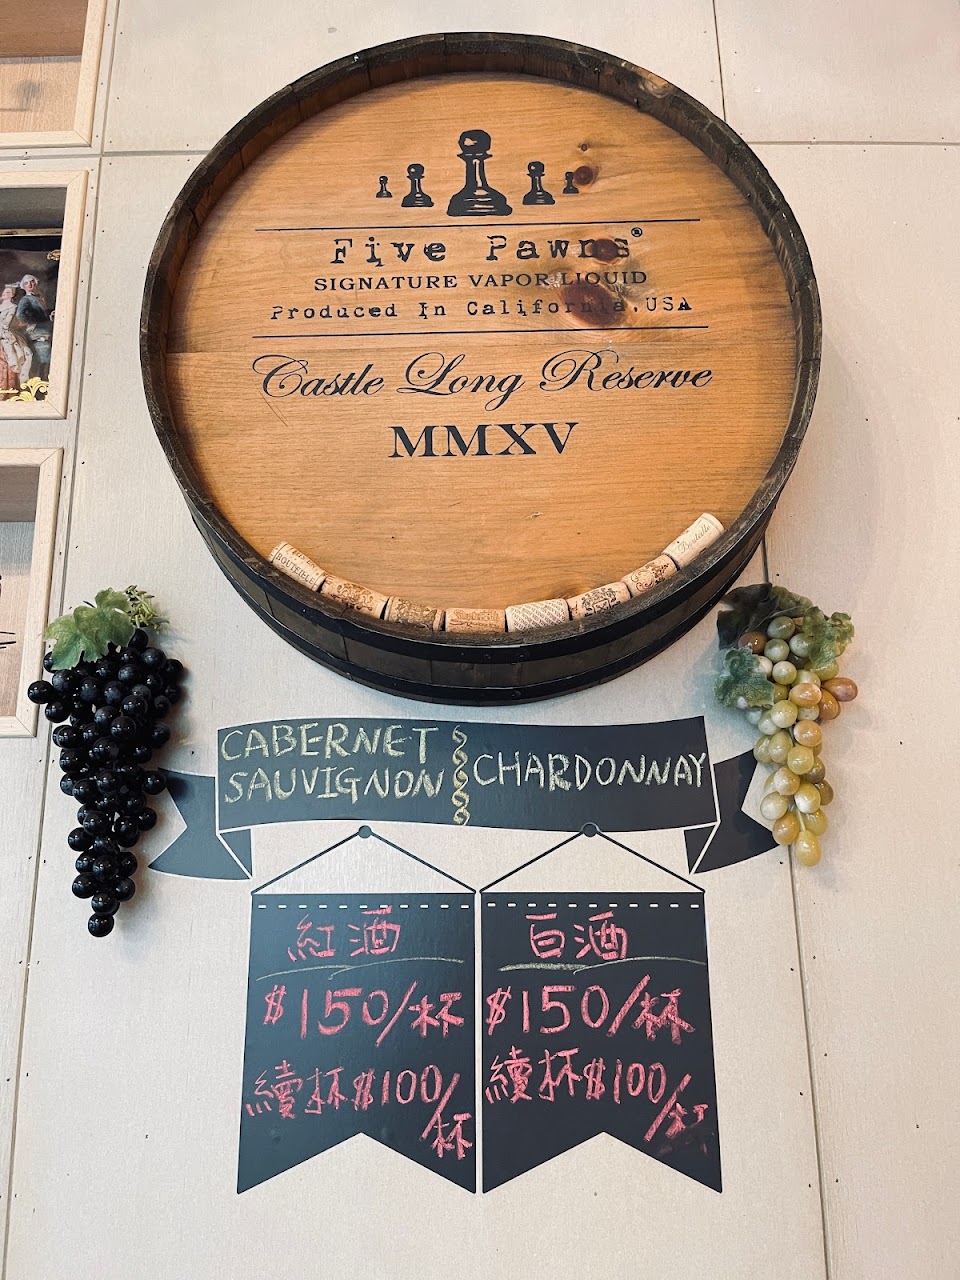 Five Pawns®
SIGNATURE VAPOR LIQUID
Produced In California, USA
Castle Long Reserve
MMXV
BOUTEILLE
Bouteille
CABERNET
SAUVIGNON
CHARDONNAY
紅酒
$150/杯
續杯$100/
杯
白酒
$150/杯
續杯$100
/杯